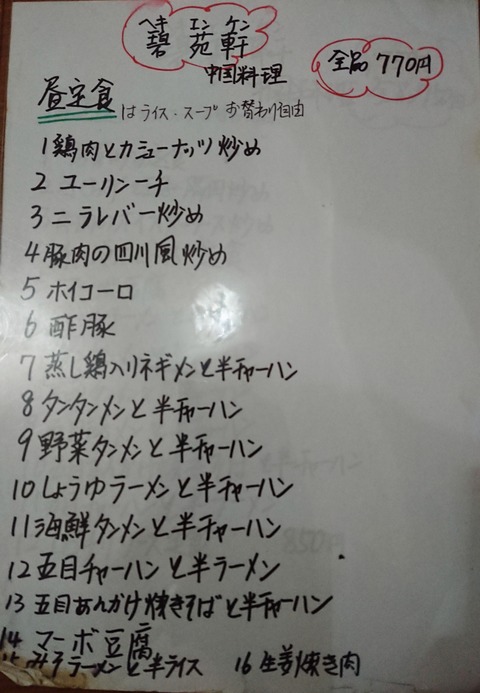 ヘキ エン ケン
碧 苑 軒
中国料理
全品 770円
昼定食
はライス・スープお替わり自由
1 鶏肉とカシューナッツ炒め
2 ユーリンーチ
3 ニラレバー炒め
4 豚肉の四川風炒め
5 ホイコーロ
6 酢豚
7 蒸し鶏入りネギメンと半チャーハン
8 タンタンメンと半チャーハン
9 野菜タンメンと半チャーハン
10 しょうゆラーメンと半チャーハン
11 海鮮タンメンと半チャーハン
12 五目チャーハンと半ラーメン
13 五目あんかけ焼きそばと半チャーハン
14 マーボ豆腐
15 みそラーメンと半ライス 16 生姜焼き肉